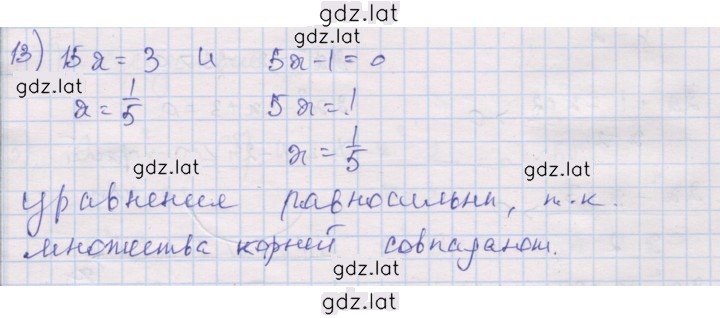 gdz.lat
13) 15x = 3 и 5x-1=0
gdz.lat
x = 1/5 5x = 1
x = 1/5
gdz.lat
gdz.lat
уравнения равносильны, т.к.
множества корней совпадают.
gdz.lat
gdz.lat